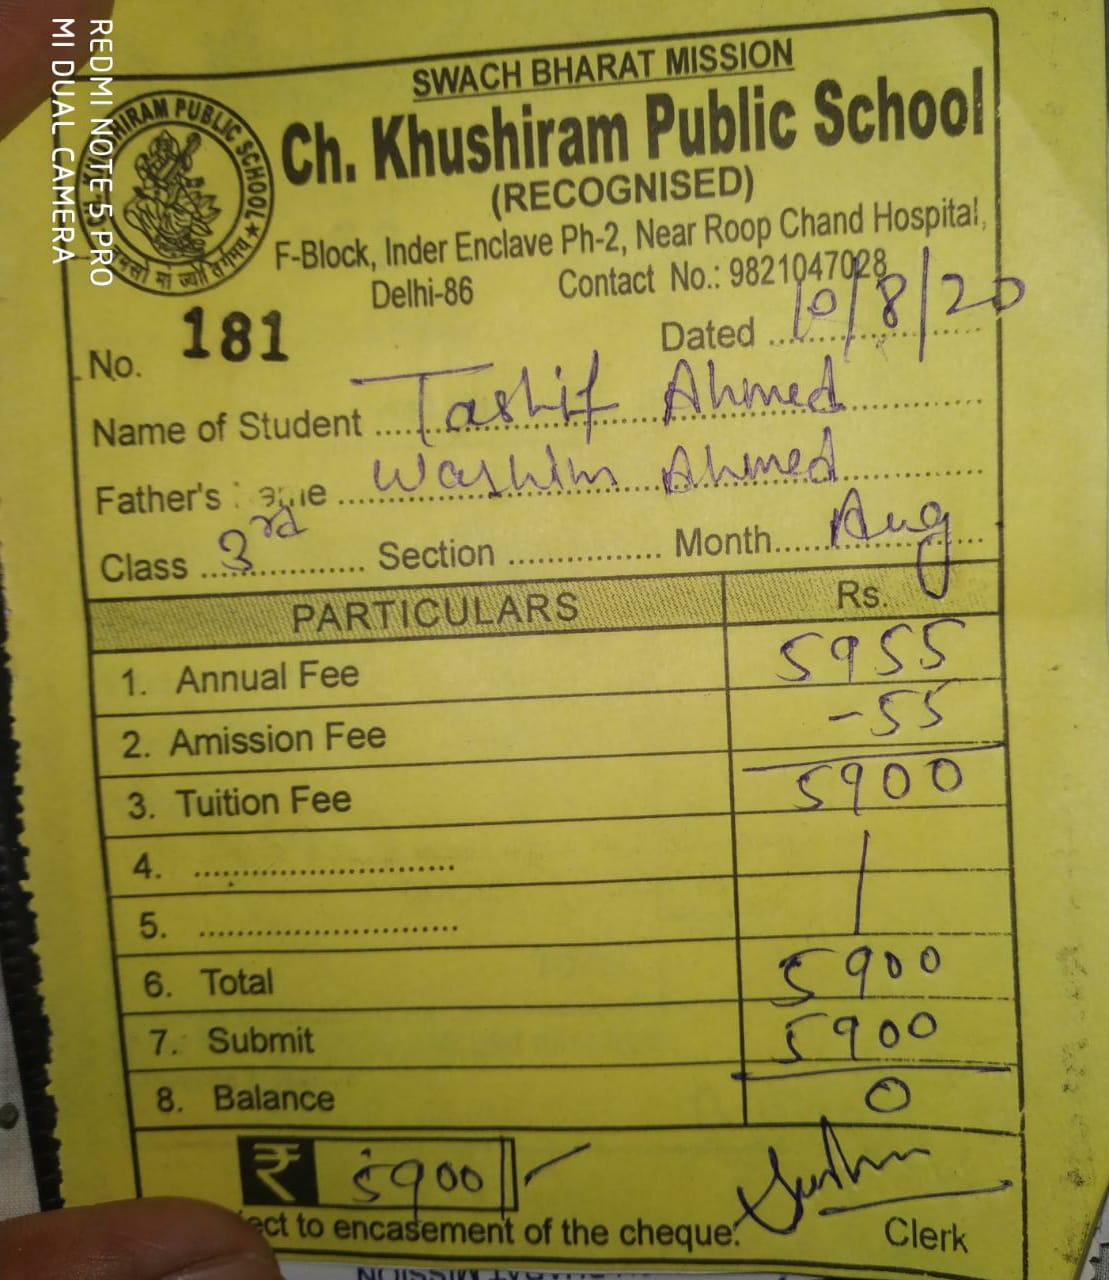 REDMI NOTE 5 PRO
MI DUAL CAMERA
SWACH BHARAT MISSION
HIRAM PUBLIC SCHOOL ★
Ch. Khushiram Public School
(RECOGNISED)
F-Block, Inder Enclave Ph-2, Near Roop Chand Hospital,
Delhi-86 Contact No.: 9821047028
No. 181 Dated 10/8/20
Name of Student Tashif Ahmed
Father's Washim Ahmed
Class 3rd Section Month Aug
PARTICULARS Rs.
1. Annual Fee 5955
2. Amission Fee -55
3. Tuition Fee 5900
4.
5.
6. Total 5900
7. Submit 5900
8. Balance 0
₹ 5900/-
ect to encasement of the cheque. Clerk